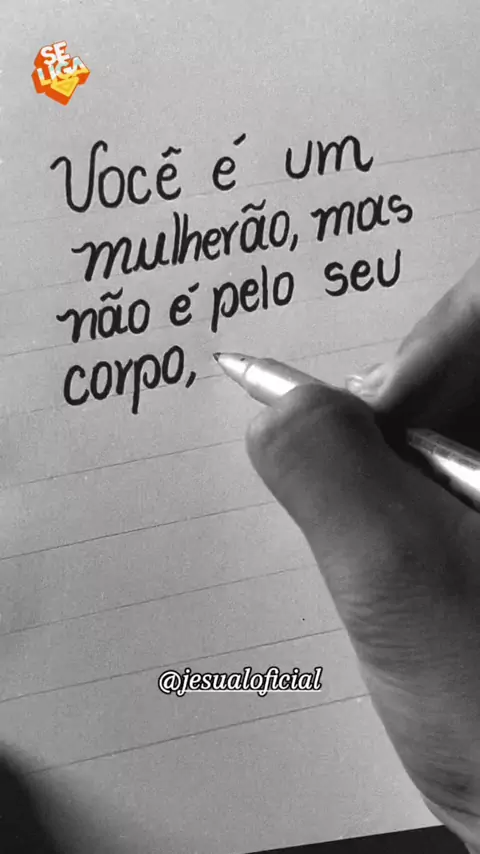 SE
LIGA
Você é um
mulherão, mas
não é pelo seu
corpo,
@jesualoficial